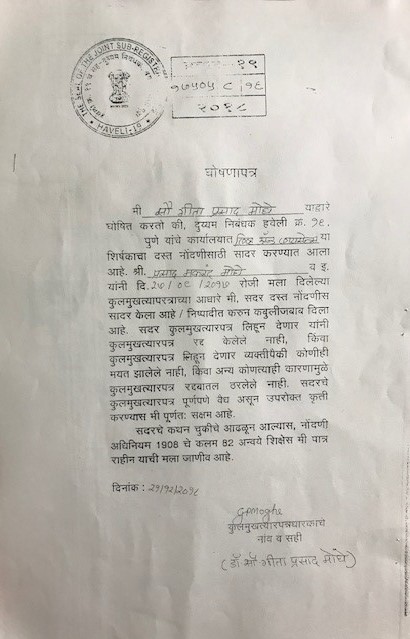 THE SEAL OF THE JOINT SUB-REGISTRAR
HAVELI-19
१९
१७५०५ ८ १६
२०१८
घोषणापत्र
मी सौ गीता प्रसाद मोघे याद्वारे
घोषित करतो की, दुय्यम निबंधक हवेली क्र. १९,
पुणे यांचे कार्यालयात या
शिर्षकाचा दस्त नोंदणीसाठी सादर करण्यात आला
आहे. श्री. प्रसाद मोघे व इ.
यांनी दि. रोजी मला दिलेल्या
कुलमुखत्यापत्राच्या आधारे मी, सदर दस्त नोंदणीस
सादर केला आहे / निष्पादीत करुन कबुलीजबाब दिला
आहे. सदर कुलमुखत्यारपत्र लिहून देणार यांनी
कुलमुखत्यारपत्र रद्द केलेले नाही, किंवा
कुलमुखत्यारपत्र लिहून देणार व्यक्तीपैकी कोणीही
मयत झालेले नाही, किंवा अन्य कोणत्याही कारणामुळे
कुलमुखत्यारपत्र रद्दबातल ठरलेले नाही. सदरचे
कुलमुखत्यारपत्र पूर्णपणे वैध असून उपरोक्त कृती
करण्यास मी पूर्णत: सक्षम आहे.
सदरचे कथन चुकीचे आढळून आल्यास, नोंदणी
अधिनियम 1908 चे कलम 82 अन्वये शिक्षेस मी पात्र
राहीन याची मला जाणीव आहे.
दिनांक : २१/१२/२०१८
GPMoghe
कुलमुखत्यारपत्रधारकाचे
नांव व सही
(डॉ सौ गीता प्रसाद मोघे)